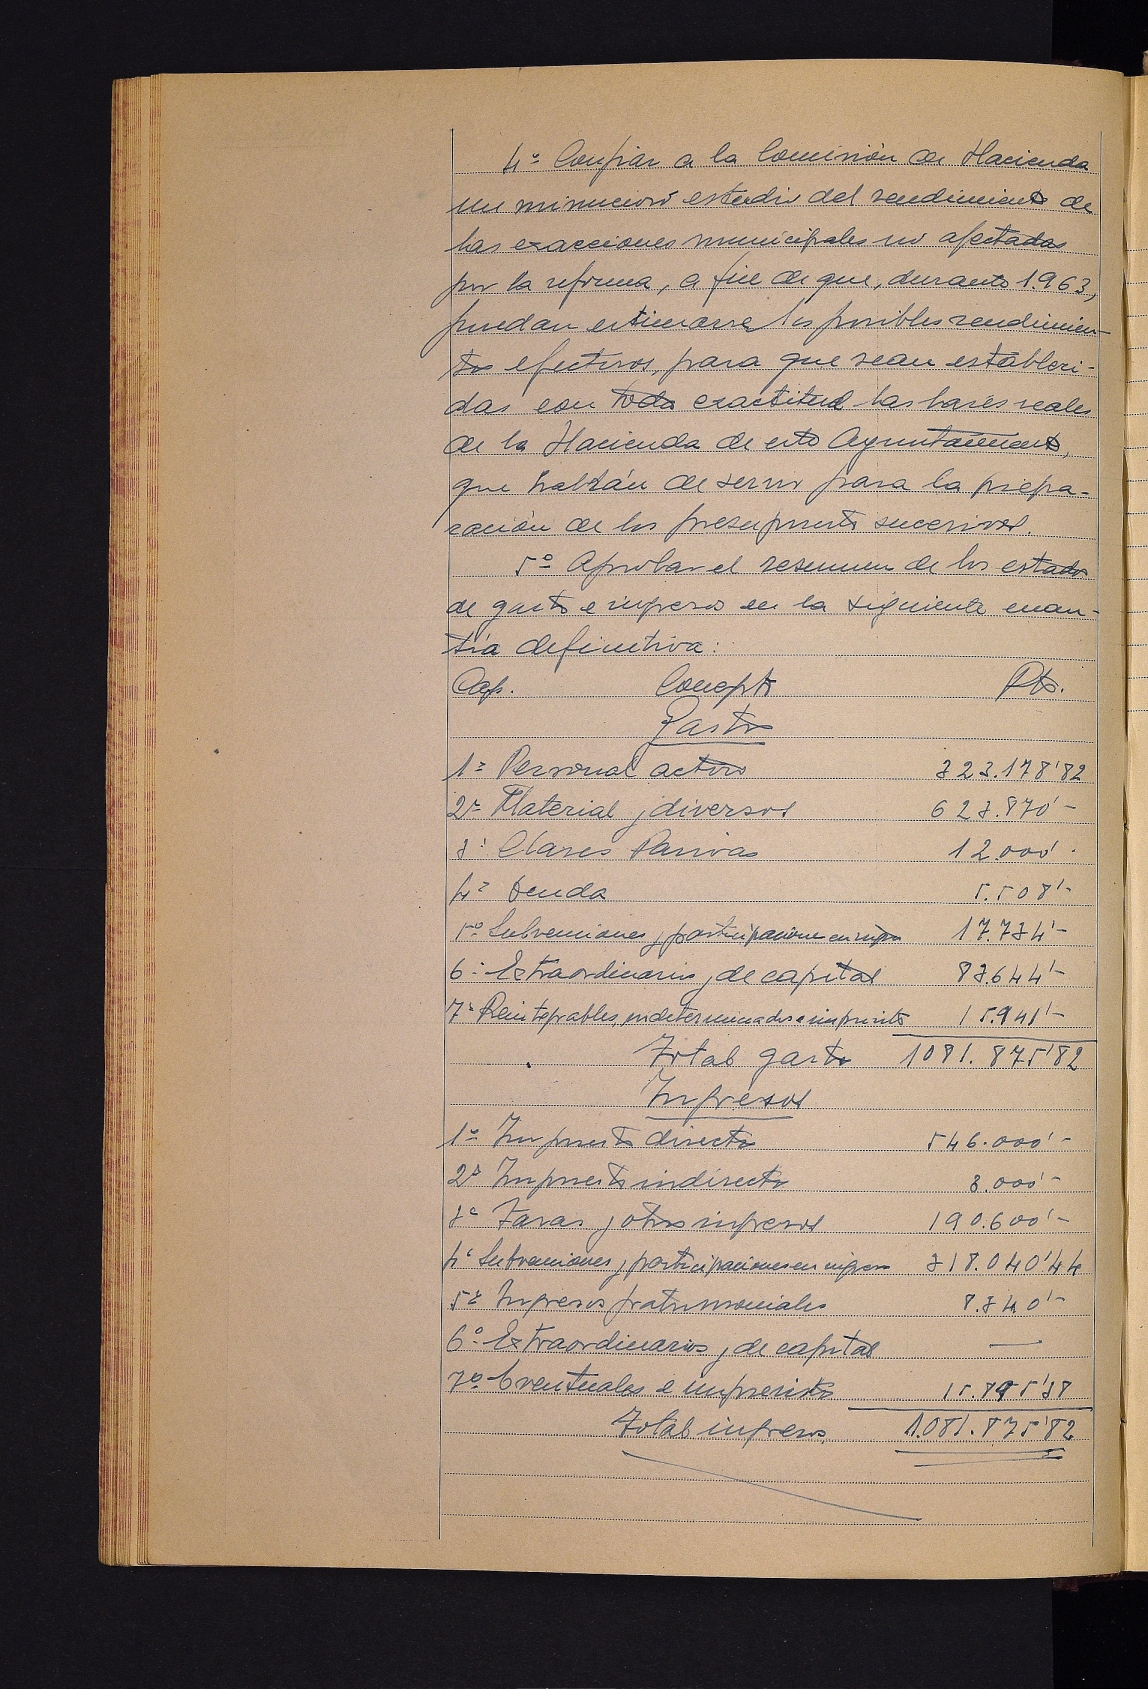 4º Confiar a la Comisión de Hacienda
un minucioso estudio del rendimiento de
las exacciones municipales no afectadas
por la reforma, a fin de que, durante 1963,
puedan estimarse los posibles rendimien-
tos efectivos, para que sean estableci-
das con toda exactitud las bases reales
de la Hacienda de este Ayuntamiento,
que habrán de servir para la prepa-
ración de los presupuestos sucesivos.
5º Aprobar el resumen de los estados
de gastos e ingresos en la siguiente cuan-
tía definitiva:
Cap. Concepto Pts.
Gastos
1º Personal activo 323.178'82
2º Material y diversos 623.870'-
3º Clases Pasivas 12.000'-
4º Deuda 5.508'-
5º Subvenciones y participaciones en ingre 17.734'-
6º Extraordinarios y de capital 83.644'-
7º Reintegrables, indeterminados e imprevistos 15.941'-
Total gastos 1081.875'82
Ingresos
1º Impuestos directos 546.000'-
2º Impuestos indirectos 3.000'-
3º Tasas y otros ingresos 190.600'-
4º Subvenciones y participaciones en ingresos 318.040'44
5º Ingresos patrimoniales 8.340'-
6º Extraordinarios y de capital —
7º Eventuales e imprevistos 15.895'38
Total ingresos 1.081.875'82